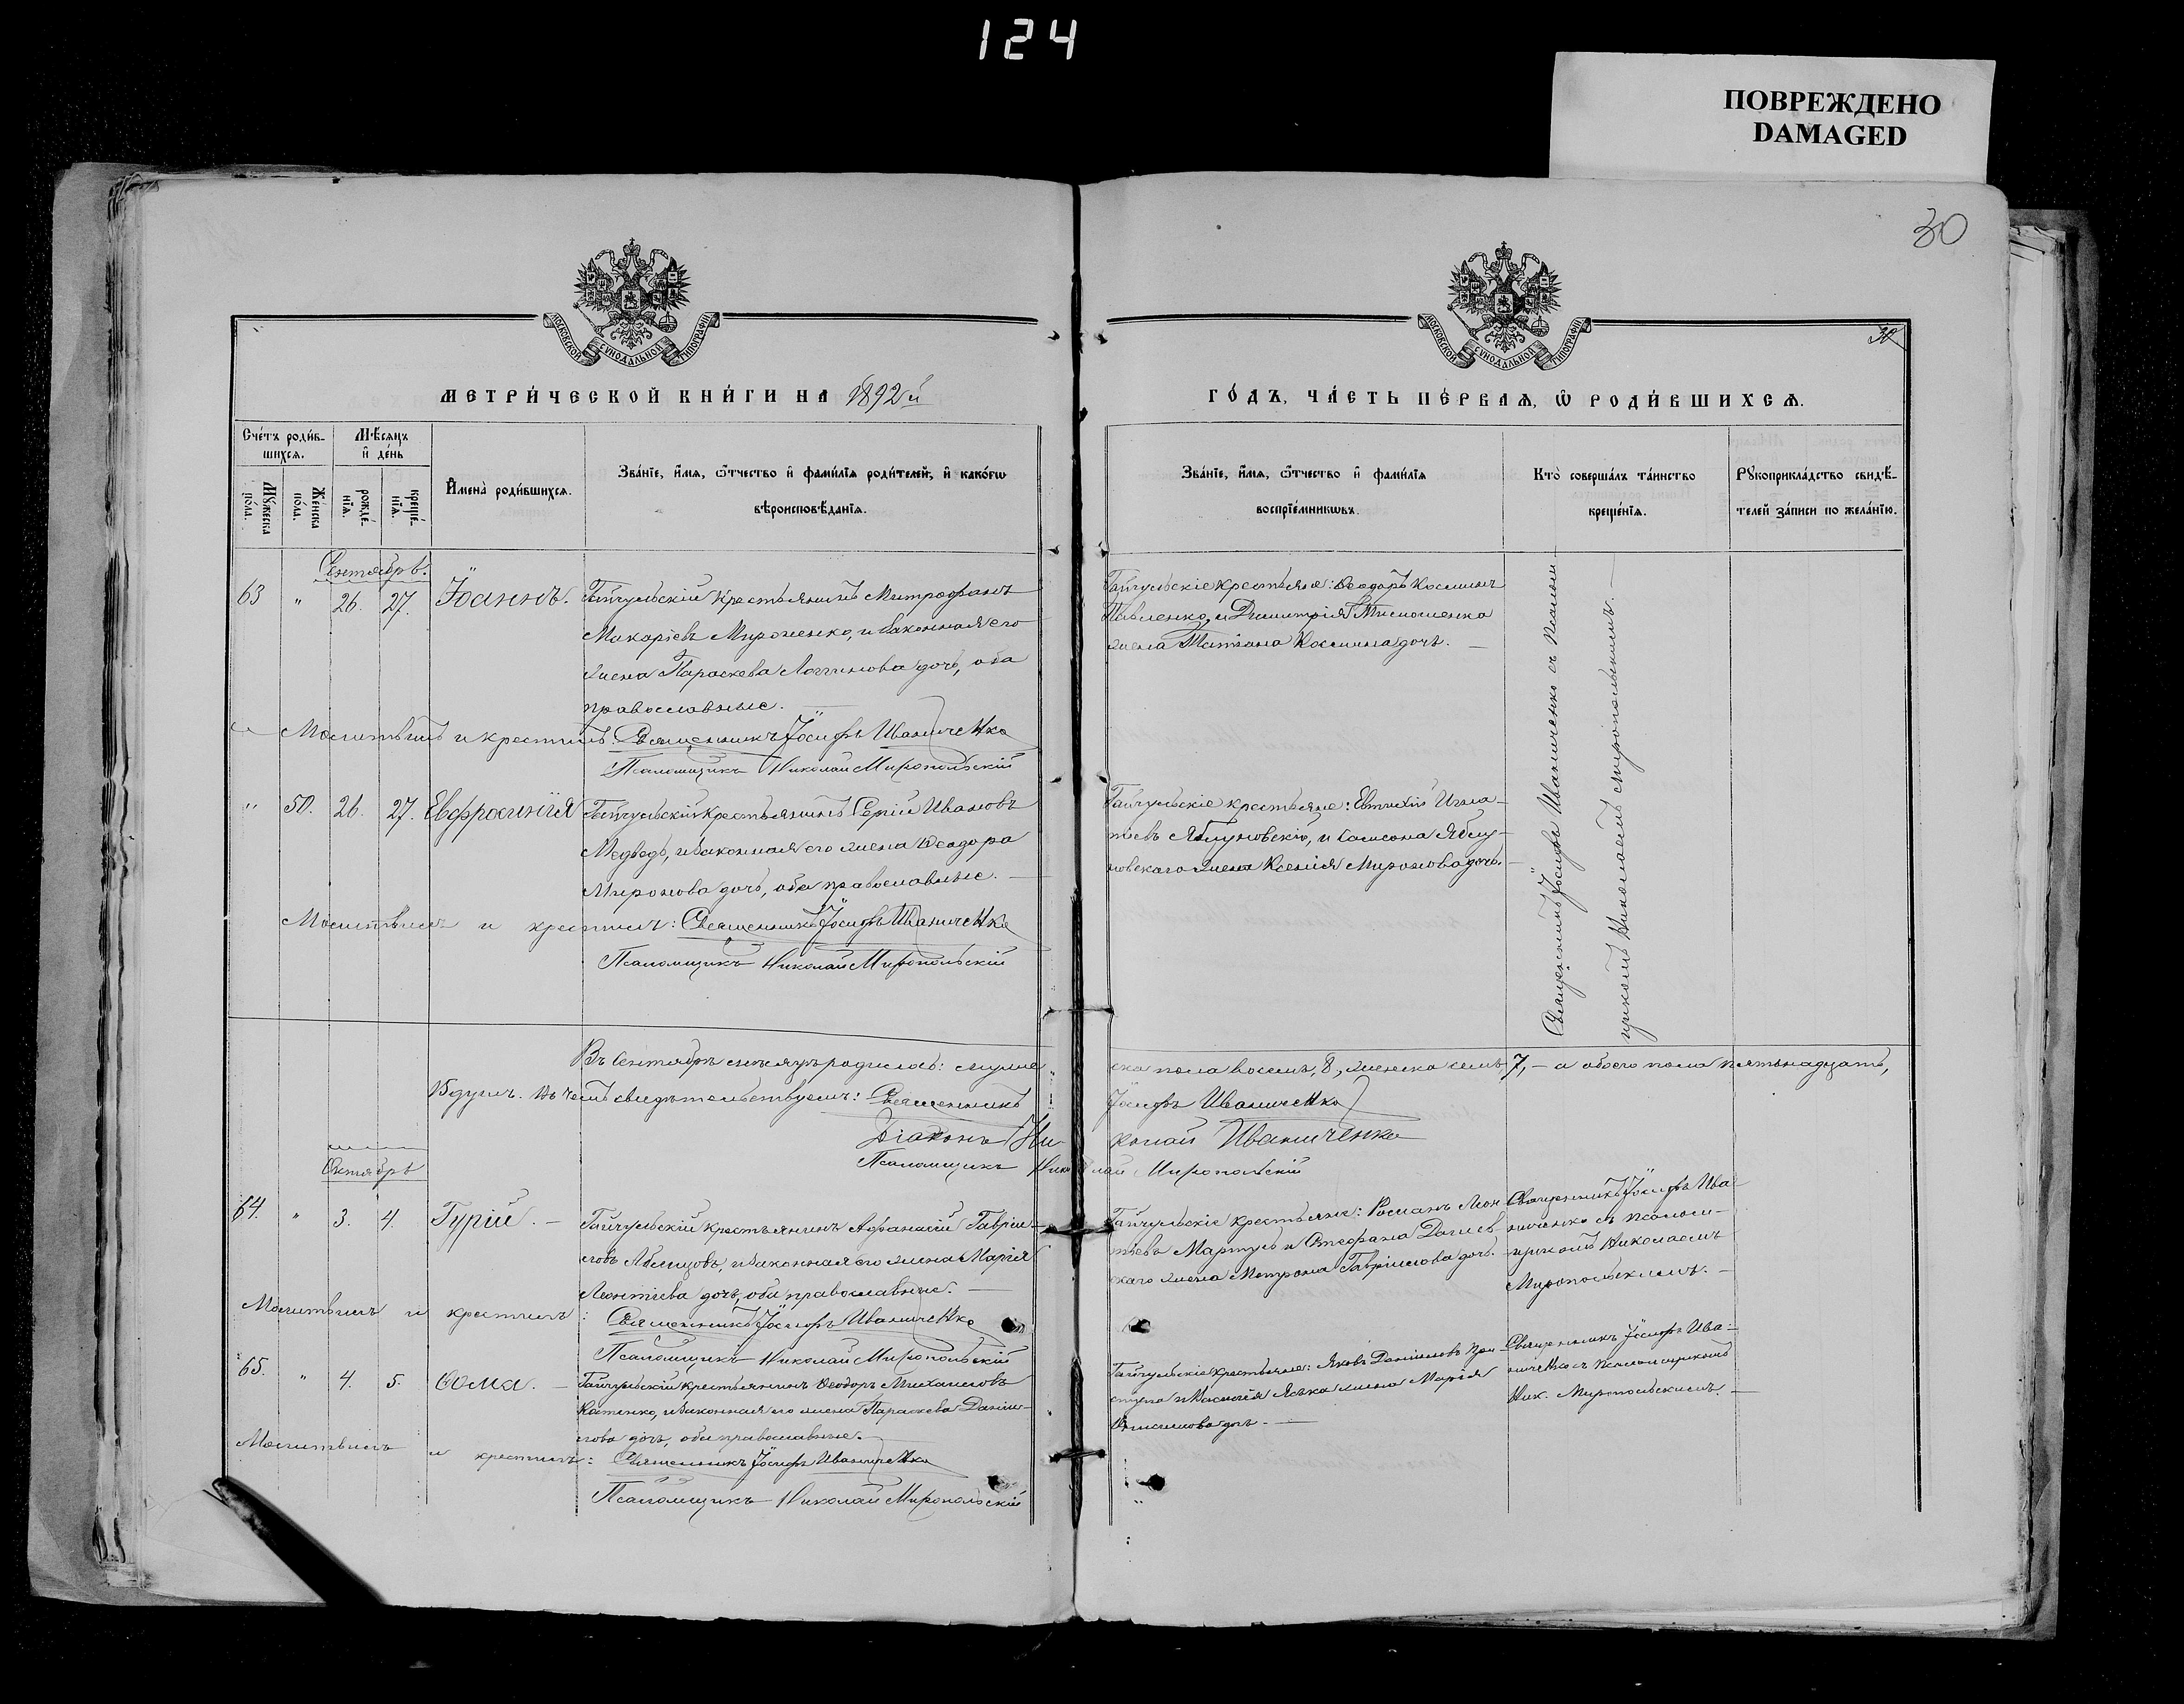 124
ПОВРЕЖДЕНО
DAMAGED
30
МОСКОВСКОЙ СѴНОДАЛЬНОЙ ТИПОГРАФІИ
МОСКОВСКОЙ СѴНОДАЛЬНОЙ ТИПОГРАФІИ
30
МЕТРИ́ЧЕСКОЙ КНИ́ГИ НА 1892й
ГО́ДЪ, ЧА́СТЬ ПЕ́РВАѦ, Ѡ РОДИ́ВШИХСѦ.
Сче́тъ роди́в-
шихсѧ.
Мѣ́сѧцъ
и҆ де́нь
Мꙋжеска
по́ла.
Же́нска
по́ла.
рожде́-
нїѧ.
креще́-
нїѧ.
И҆мена̀ роди́вшихсѧ.
Зва́нїе, и҆́мѧ, ѻ҆́тчество и҆ фами́лїѧ роди́телей, и҆ како́гѡ
вѣроисповѣ́данїѧ.
Зва́нїе, и҆́мѧ, ѻ҆́тчество и҆ фами́лїѧ
воспрїе́мникѡвъ.
Кто̀ соверша́лъ та́инство
креще́нїѧ.
Рꙋкоприкла́дство свидѣ́-
телей за́писи по жела́нїю.
Сентябрь.
63 " 26. 27. Іоаннъ. Гайчульскій крестьянинъ Митрофанъ
Макаріевъ Мироненко, и законная его
жена Параскева Логгинова дочь, оба
православные.
Гайчульскіе крестьяне: Ѳеодоръ Косминъ
Павленко, и Димитрія Тимошенка
жена Татіана Космина дочь. —
Священникъ Іосифъ Иваниченко съ псалом-
щикомъ Николаемъ Миропольскимъ. —
Молитвилъ и крестилъ: Священникъ Іосифъ Иваниченко
Псаломщикъ Николай Миропольскій
" 50. 26. 27. Евфросинія Гайчульскій крестьянинъ Сергій Ивановъ
Медведь, и законная его жена Ѳеодора
Миронова дочь, оба православные. —
Гайчульскіе крестьяне: Евтихій Игна-
тіевъ Яблуновскій, и Самсона Яблу-
новскаго жена Ксенія Миронова дочь. —
Молитвилъ и крестилъ: Священникъ Іосифъ Иваниченко
Псаломщикъ Николай Миропольскій
Въ Сентябрѣ мѣсяцѣ родилось: муже
ска пола восемь, 8, женска семь 7, — а обоего пола пятьнадцать,
15 душъ. Въ чемъ свидѣтельствуемъ: Священникъ
Іосифъ Иваниченко
Діаконъ Ни-
колай Иваниченко
Псаломщикъ Николай Миропольскій
Октябрь
64. " 3. 4. Гурій. — Гайчульскій крестьянинъ Аѳанасій Гавріи-
ловъ, и законная его жена Марія
Леонтіева дочь, оба православные. —
Гайчульскіе крестьяне: Романъ Леон-
тіевъ Мартусь и Стефана
жена Матрона Гавріилова дочь. —
Священникъ Іосифъ Ива-
ниченко съ псалом-
щикомъ Николаемъ
Миропольскимъ. —
Молитвилъ и крестилъ: Священникъ Іосифъ Иваниченко
Псаломщикъ Николай Миропольскій
65. " 4. 5. Ѳома. — Гайчульскій крестьянинъ Ѳеодоръ Михаиловъ
Костенко, и законная его жена Параскева Даніи-
лова дочь, оба православные. —
Гайчульскіе крестьяне: Яковъ Даніиловъ При-
ступа и жена Марія
дочь. —
Священникъ Іосифъ Ива-
ниченко съ псаломщикомъ
Ник. Миропольскимъ. —
Молитвилъ и крестилъ: Священникъ Іосифъ Иваниченко
Псаломщикъ Николай Миропольскій